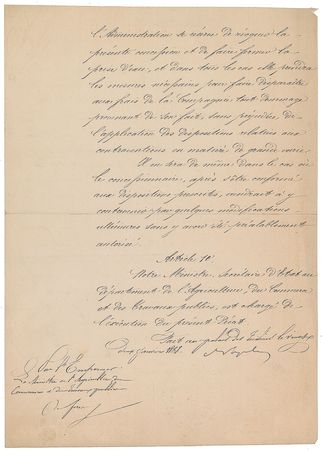 l'Administration se réserve de révoquer la
présente concession et de faire fermer la
prise d'eau, et dans tous les cas elle prendra
les mesures nécessaires pour faire disparaître
aux frais de la Compagnie tout dommage
provenant de son fait, sans préjudice de
l'application des dispositions relatives aux
contraventions en matière de grande voirie.
Il en sera de même dans le cas où
le concessionnaire, après s'être conformé
aux dispositions prescrites, viendrait à y
contrevenir par quelques modifications
ultérieures sans y avoir été préalablement
autorisé.
Article 10.
Notre Ministre, Secrétaire d'Etat au
département de l'Agriculture, du Commerce
et des Travaux publics, est chargé de
l'exécution du présent Décret.
Fait au palais des Tuileries le vingt
deux Janvier
Par l'Empereur
Le Ministre de l'Agriculture du
Commerce et des Travaux publics